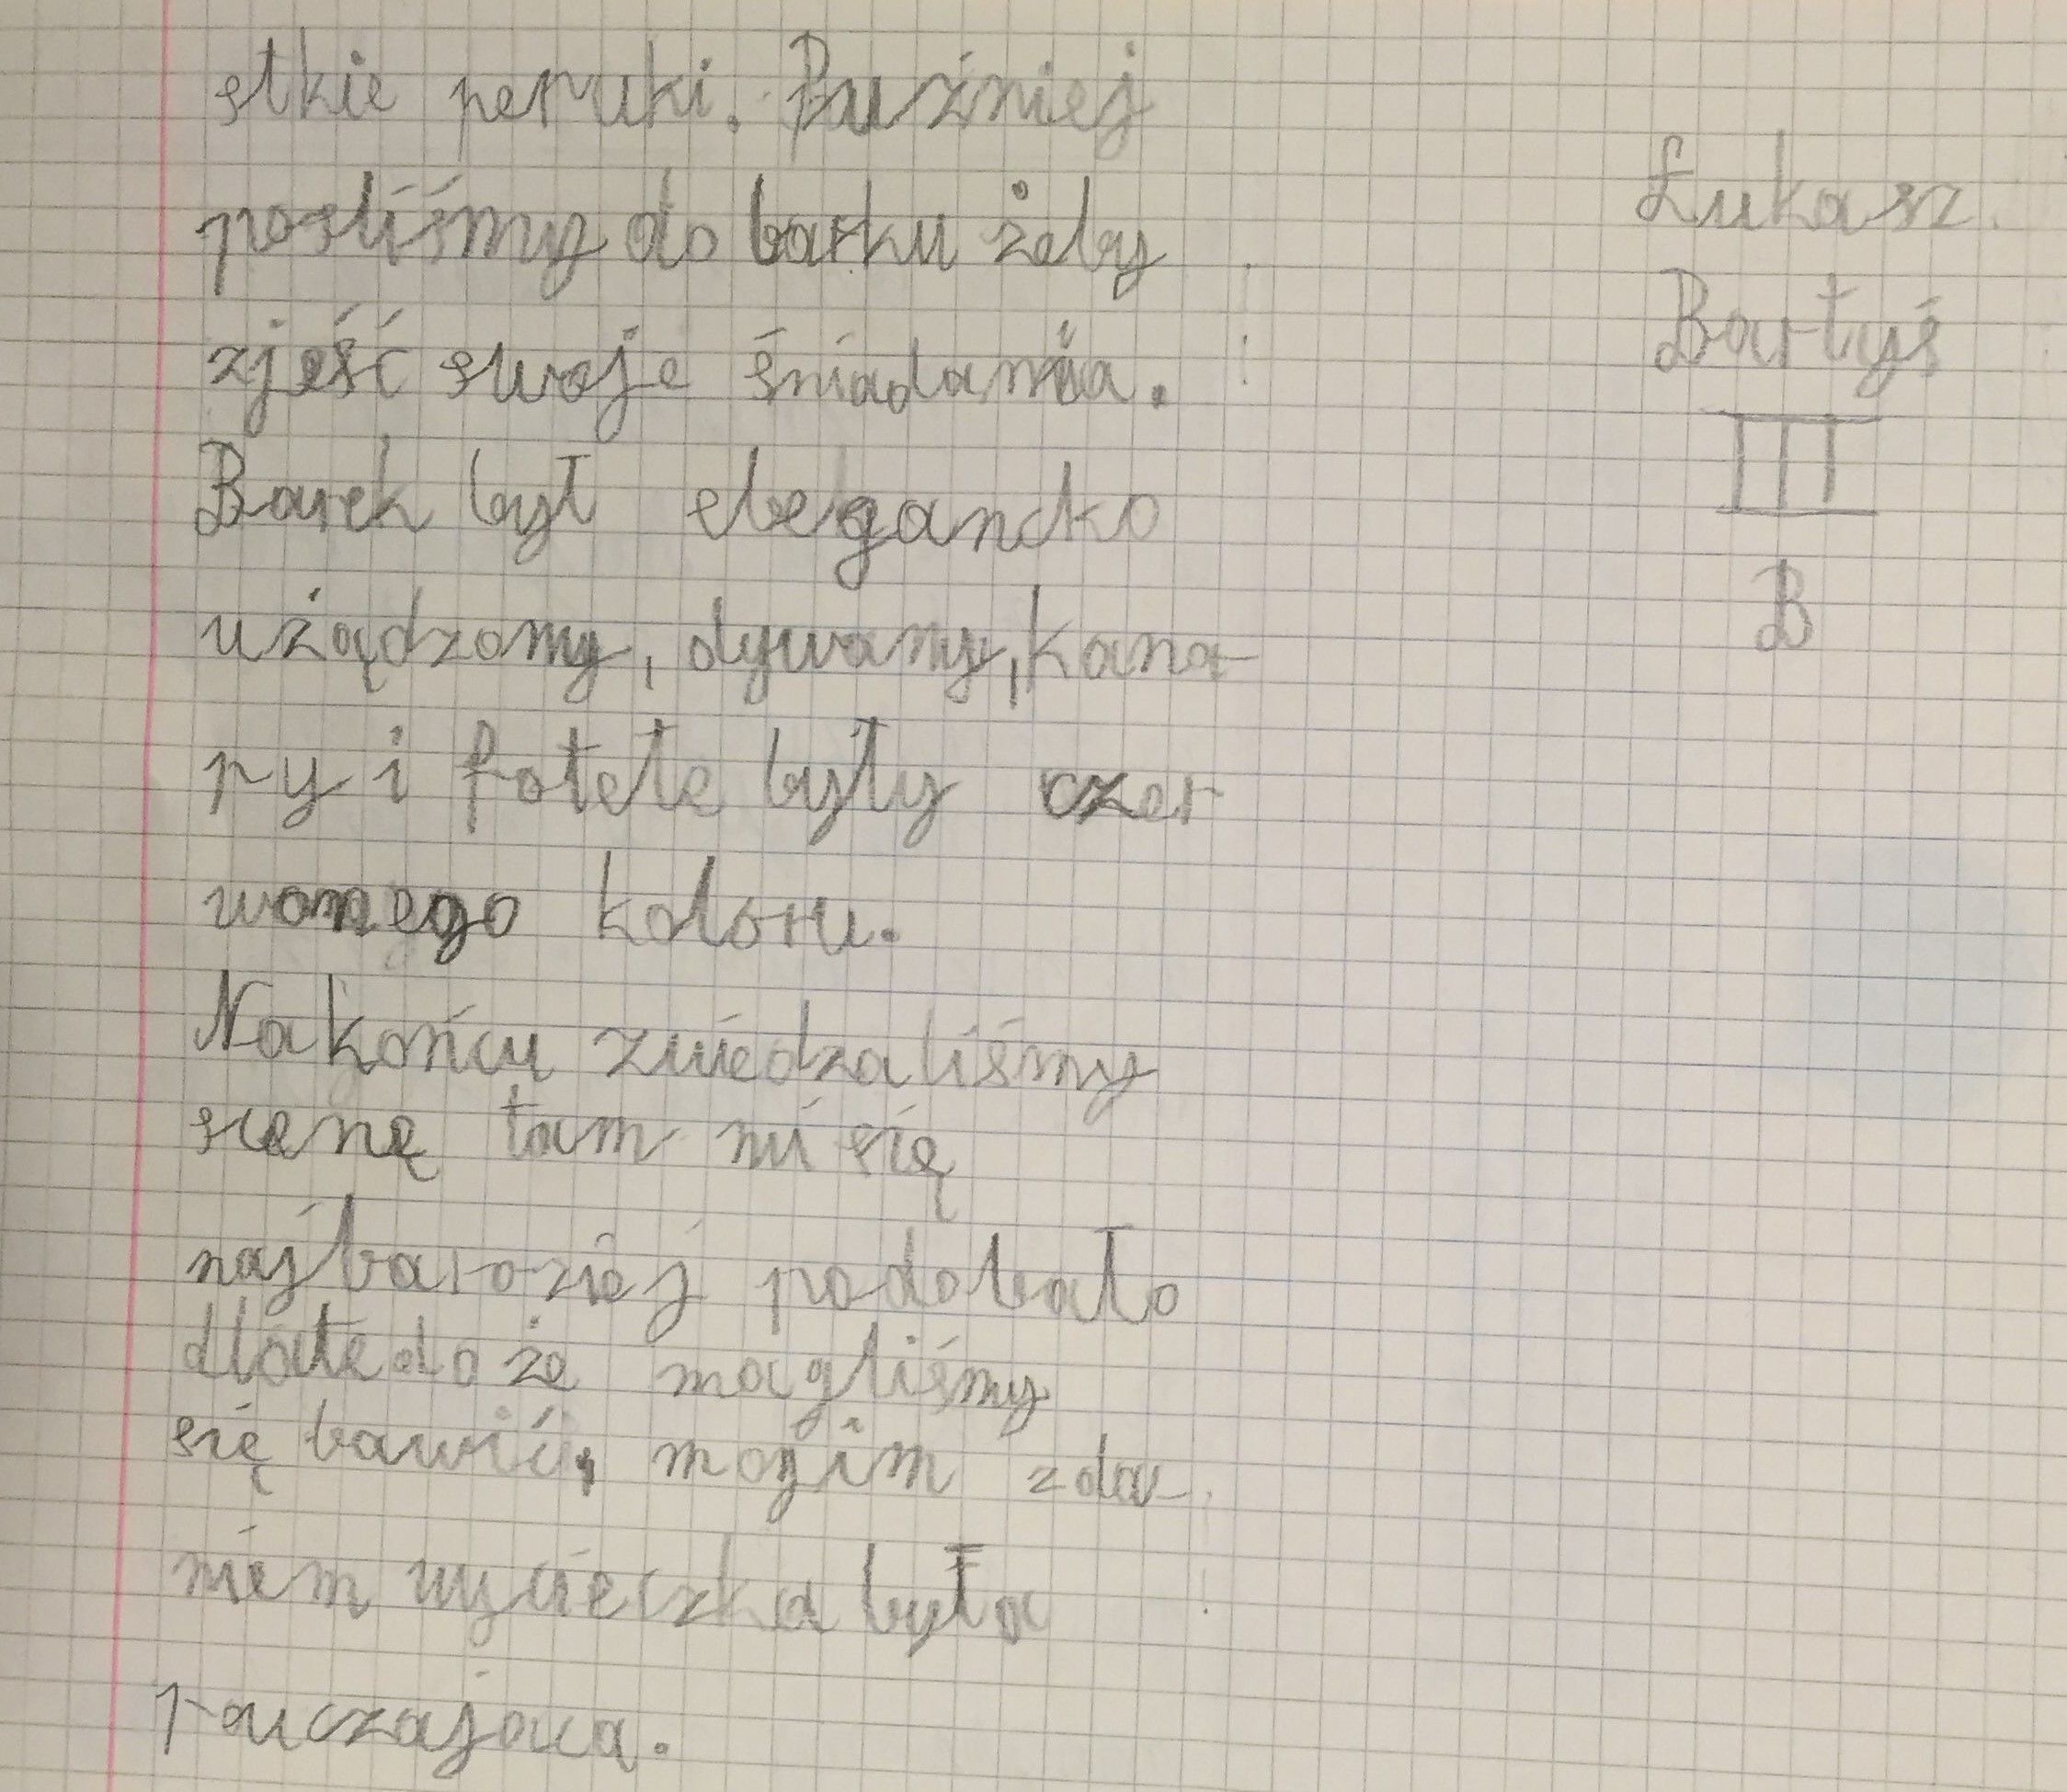 stkie peruki. Puźniej
posliśmy do barku żeby
zjeść swoje śniadania.
Barek był elegancko
użądzomy, dywany, kana-
py i fotele były czer
wonego koloru.
Na końcu zwiedzaliśmy
scenę tam mi się
najbardziej podobało
dlatedo że mogliśmy
się bawić, mojim zda-
niem wycieczka była
pouczająca.
Łukasz
Bartyś
III
B